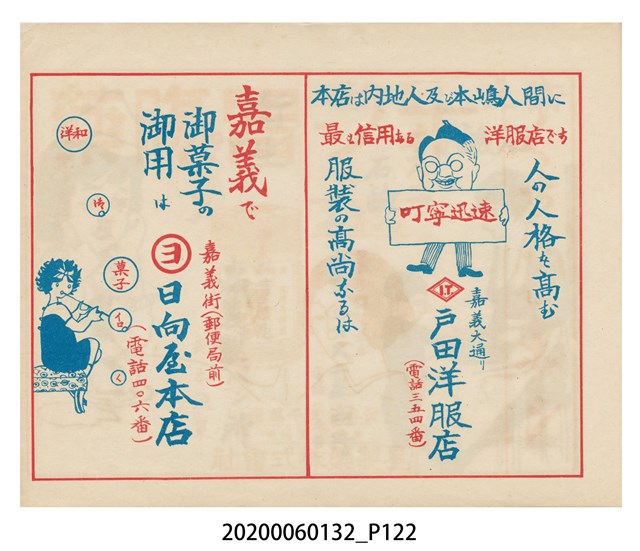 本店は内地人及び本嶋人間に
最も信用ある
洋服店です
人の人格を高む
服装の高尚なるは
叮寧迅速
I.T.
嘉義大通り
戸田洋服店
(電話三五四番)
嘉義で
御菓子の
御用は
ヨ
嘉義街(郵便局前)
日向屋本店
(電話四〇六番)
和洋
御
菓子
イロ
く
20200060132_P122